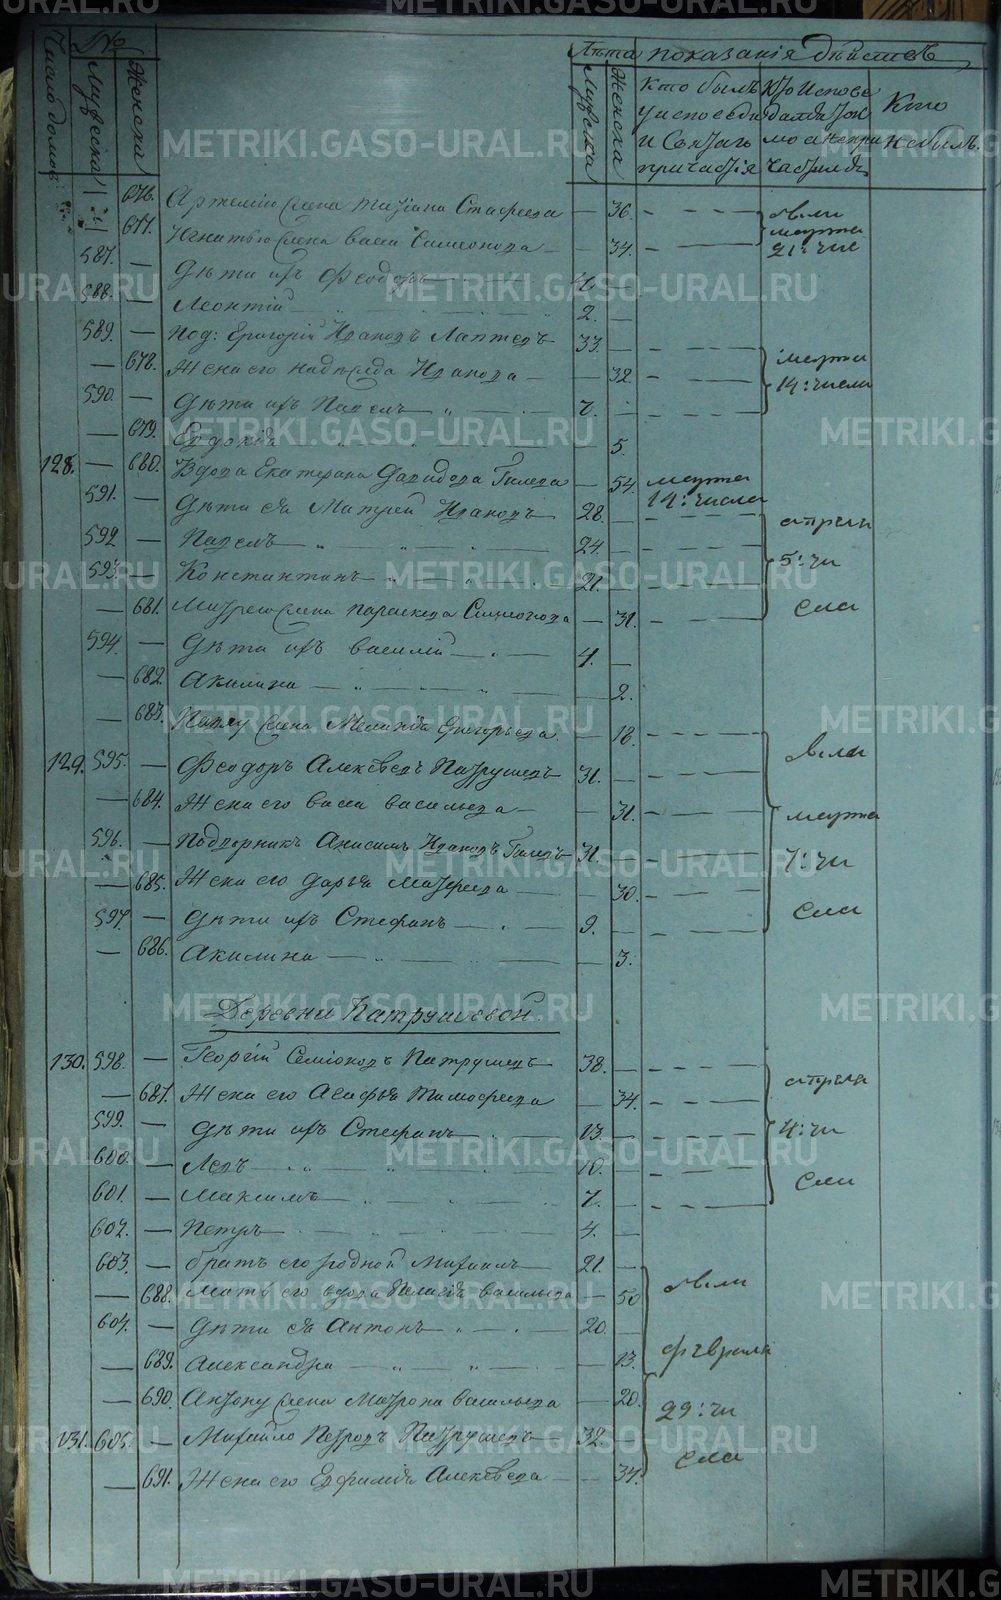 Число домовъ
№
Мужеска
Женска
Лѣта показанія дѣйствъ
Мужеска
Женска
Кто былъ у исповѣди и Святаго причастія
Кто Исповѣдался а не причастился
Кто небылъ.
676. Артемію жена татіана Стафеева — 36.
677. Игнатью жена васса Симеонова — 34. были марта 21: чис
587. — Дѣти ихъ Феодоръ — 4. —
588. — Леонтій 2. —
589. — Под: Григорій Ивановъ Лаптевъ 33. —
— 678. Жена его надѣжда Иванова — 32. марта 14: числа
590. — Дѣти ихъ Павелъ 7. —
— 679. Евдокія — 5.
128. — 680. Вдова Екатерина Давидова Гилева — 54. марта 14: числа
591. — Дѣти ея Матфей Ивановъ 28. —
592 — Павелъ 24. — апреля 5: чи сла
593. — Константинъ 21. —
— 681. Матфею жена параскева Симеонова — 31.
594. — Дѣти ихъ василій 4. —
— 682. Акилина — 2.
— 683. Павлу жена Меланія Григорьева — 18.
129. 595. — Феодоръ Алексѣевъ Патрушевъ 31. —
— 684. Жена его васса васильева — 31. были марта 7: чи сла
596. — Подворникъ Анисимъ Ивановъ Гилевъ 31. —
— 685. Жена его дарья Матфеева — 30.
597. — Дѣти ихъ Стефанъ 9. —
— 686. Акилина — 3.
Деревни Патрушевой.
130. 598. — Георгій Семіоновъ Патрушевъ 38. —
— 687. Жена его Агафья Тимофеева — 34. апреля 4: чи сла
599. — Дѣти ихъ Стефанъ 13. —
600. — Левъ 10. —
601. — Максимъ 7. —
602. — Петръ 4. —
603. — братъ его родной Михаилъ 21. —
— 688. мать его вдова Пелагія васильева — 50 были февраля 29: чи сла
604. — Дѣти ея Антонъ 20. —
— 689. Александра — 13.
— 690. Антону жена Матрона васильева — 20.
131. 605. — Михайло Петровъ Патрушевъ 32. —
— 691. Жена его Евфимія Алексѣева — 34.
METRIKI.GASO-URAL.RU